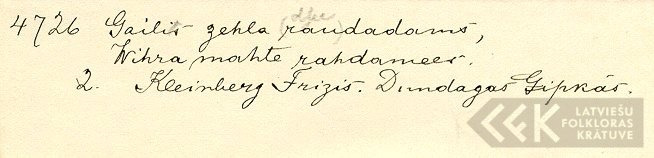 4726 Gailis zehla raudadams,
Wihra mahte rahdamees.
2. Kleinberg Frizis. Dundagas Gipkās.
LATVIEŠU
FOLKLORAS
KRĀTUVE